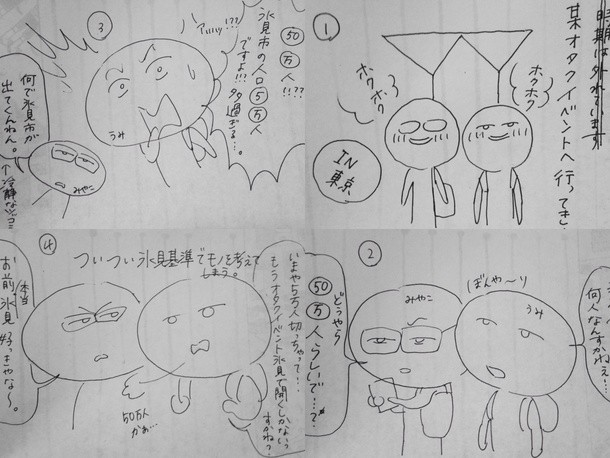 ①
時期は外れています
某オタクイベントへ行ってき
ホクホク
ホクホク
IN
東京
②
何人なんすかねぇ…
ぼんや〜り
うみ
みやこ
どうやら
50万人らしいで…?
③
50万人!!??
氷見市の人口5万人
ですよ!!!多過ぎる…。
うみ
何で氷見市が
出てくんねん。
↑冷静なツッコミ
みやこ
④
ついつい氷見基準でモノを考えて
しまう。
いまや5万人切っちゃって…
もうオタクイベント氷見で開くしかないっ
すかねっ?
50万人
かぁ…
お前本当氷見好っきやな〜。